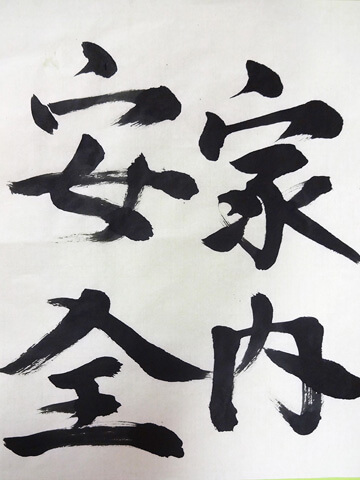 家内
安全